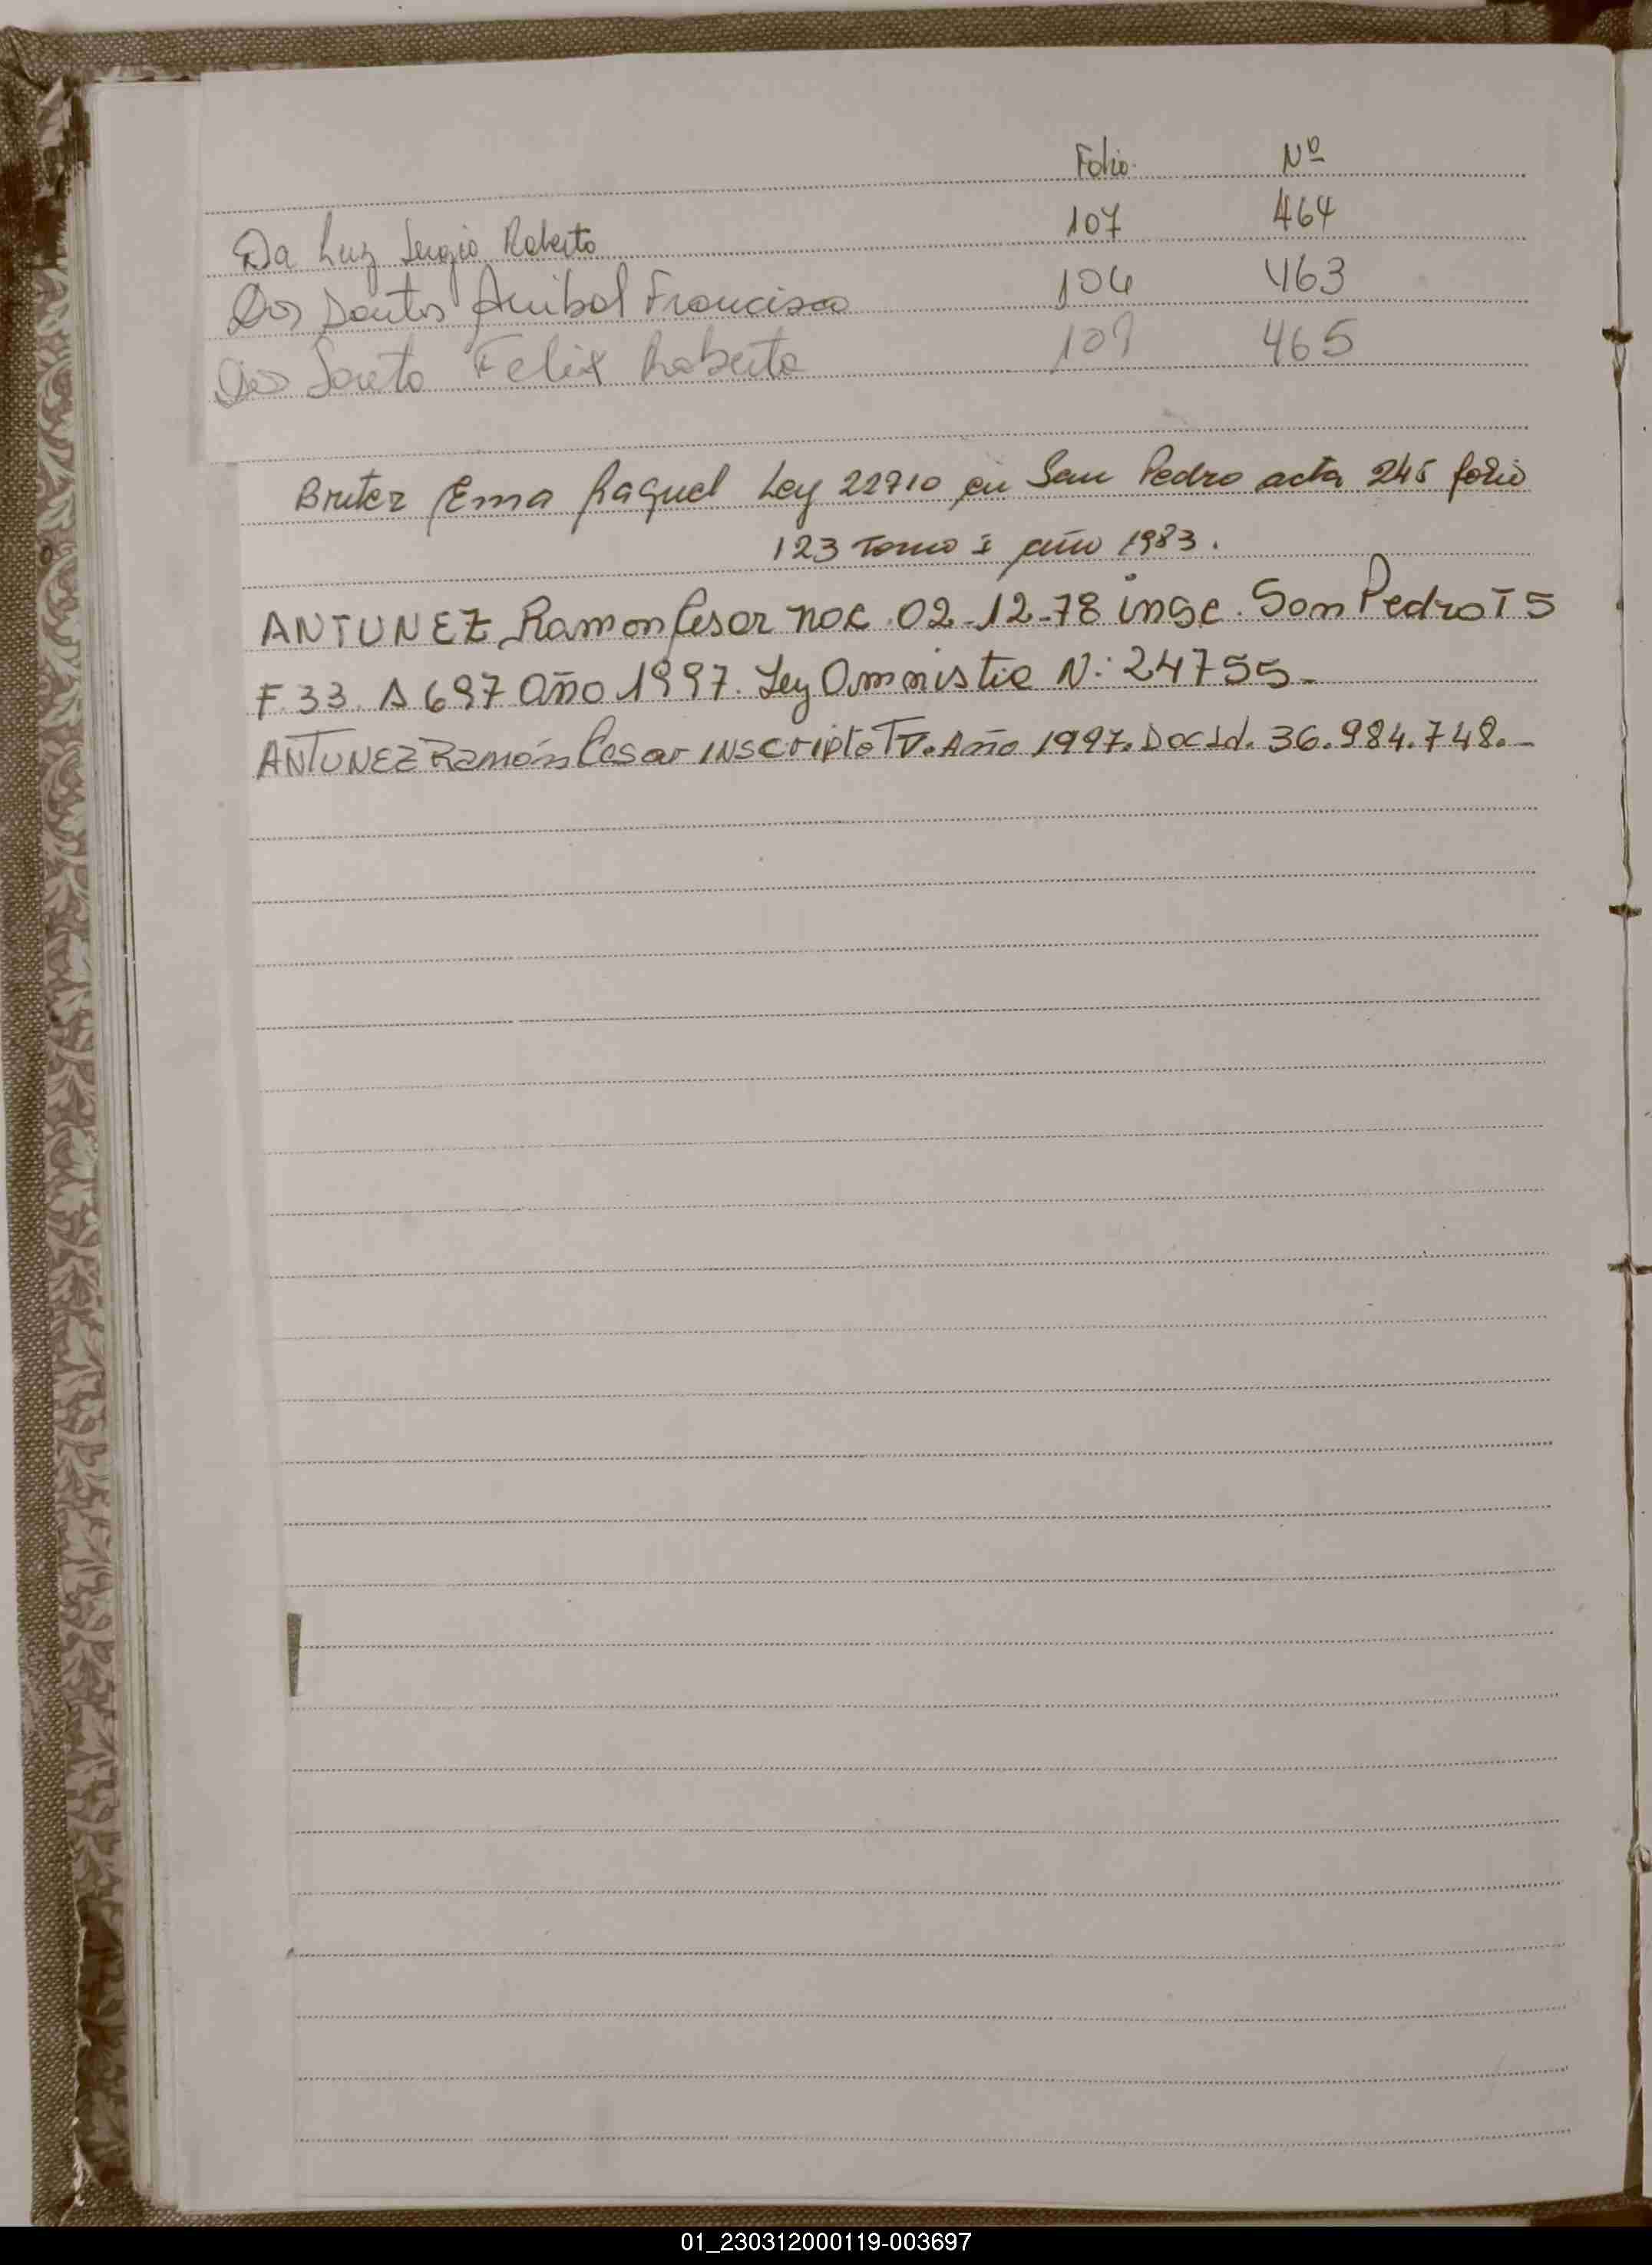 Folio Nº
Da Luz Sergio Roberto 107 464
Dos Santos Anibal Francisco 106 463
Dos Santo Felix Roberto 109 465
Bruter Ema Raquel Ley 22710 en San Pedro acta 245 folio
123 Tomo I año 1983.
ANTUNEZ Ramon Cesar nac. 02-12-78 insc. San Pedro T 5
F. 33. A 697 año 1997. Ley Amnistia N: 24755-
ANTUNEZ Ramón Cesar INScripto TV. Año 1997. Doc Id. 36.984.748.-
01_230312000119-003697